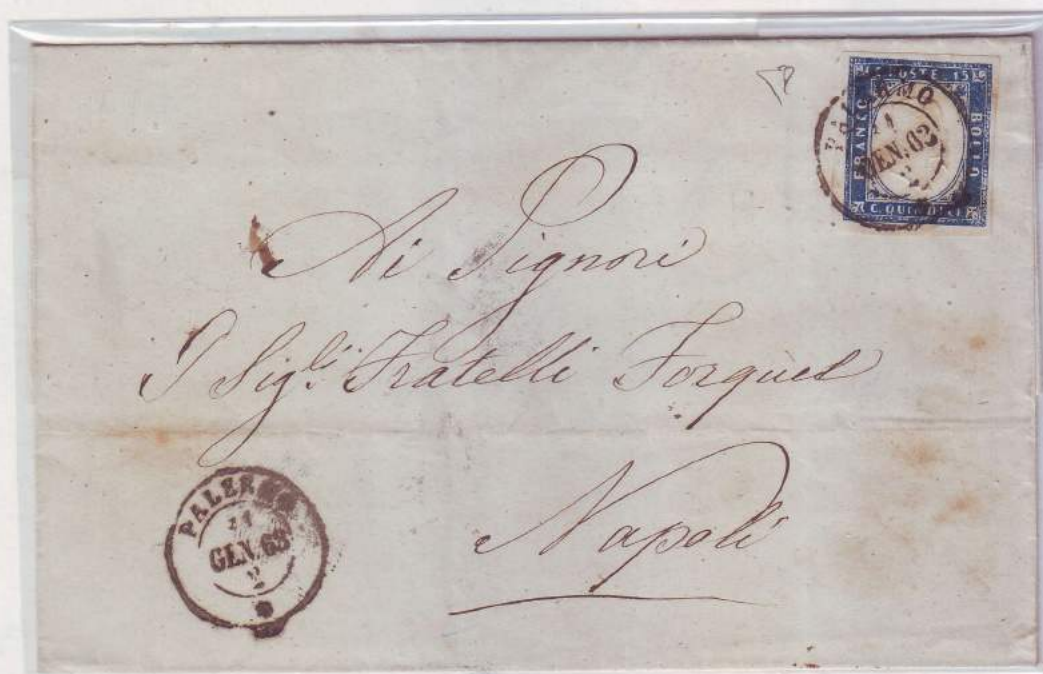 C. POSTE 15
FRANCO
BOLLO
C. QUINDICI
PALERMO
GEN. 63
2
Ai Signori
I Sigli. Fratelli Forquet
Napoli
PALERMO
GEN. 63
2